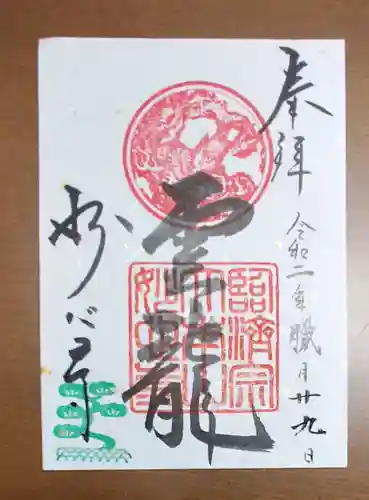 奉拝
令和二年臘月廿九日
雲龍
臨済宗
大本山
妙心寺
妙心寺